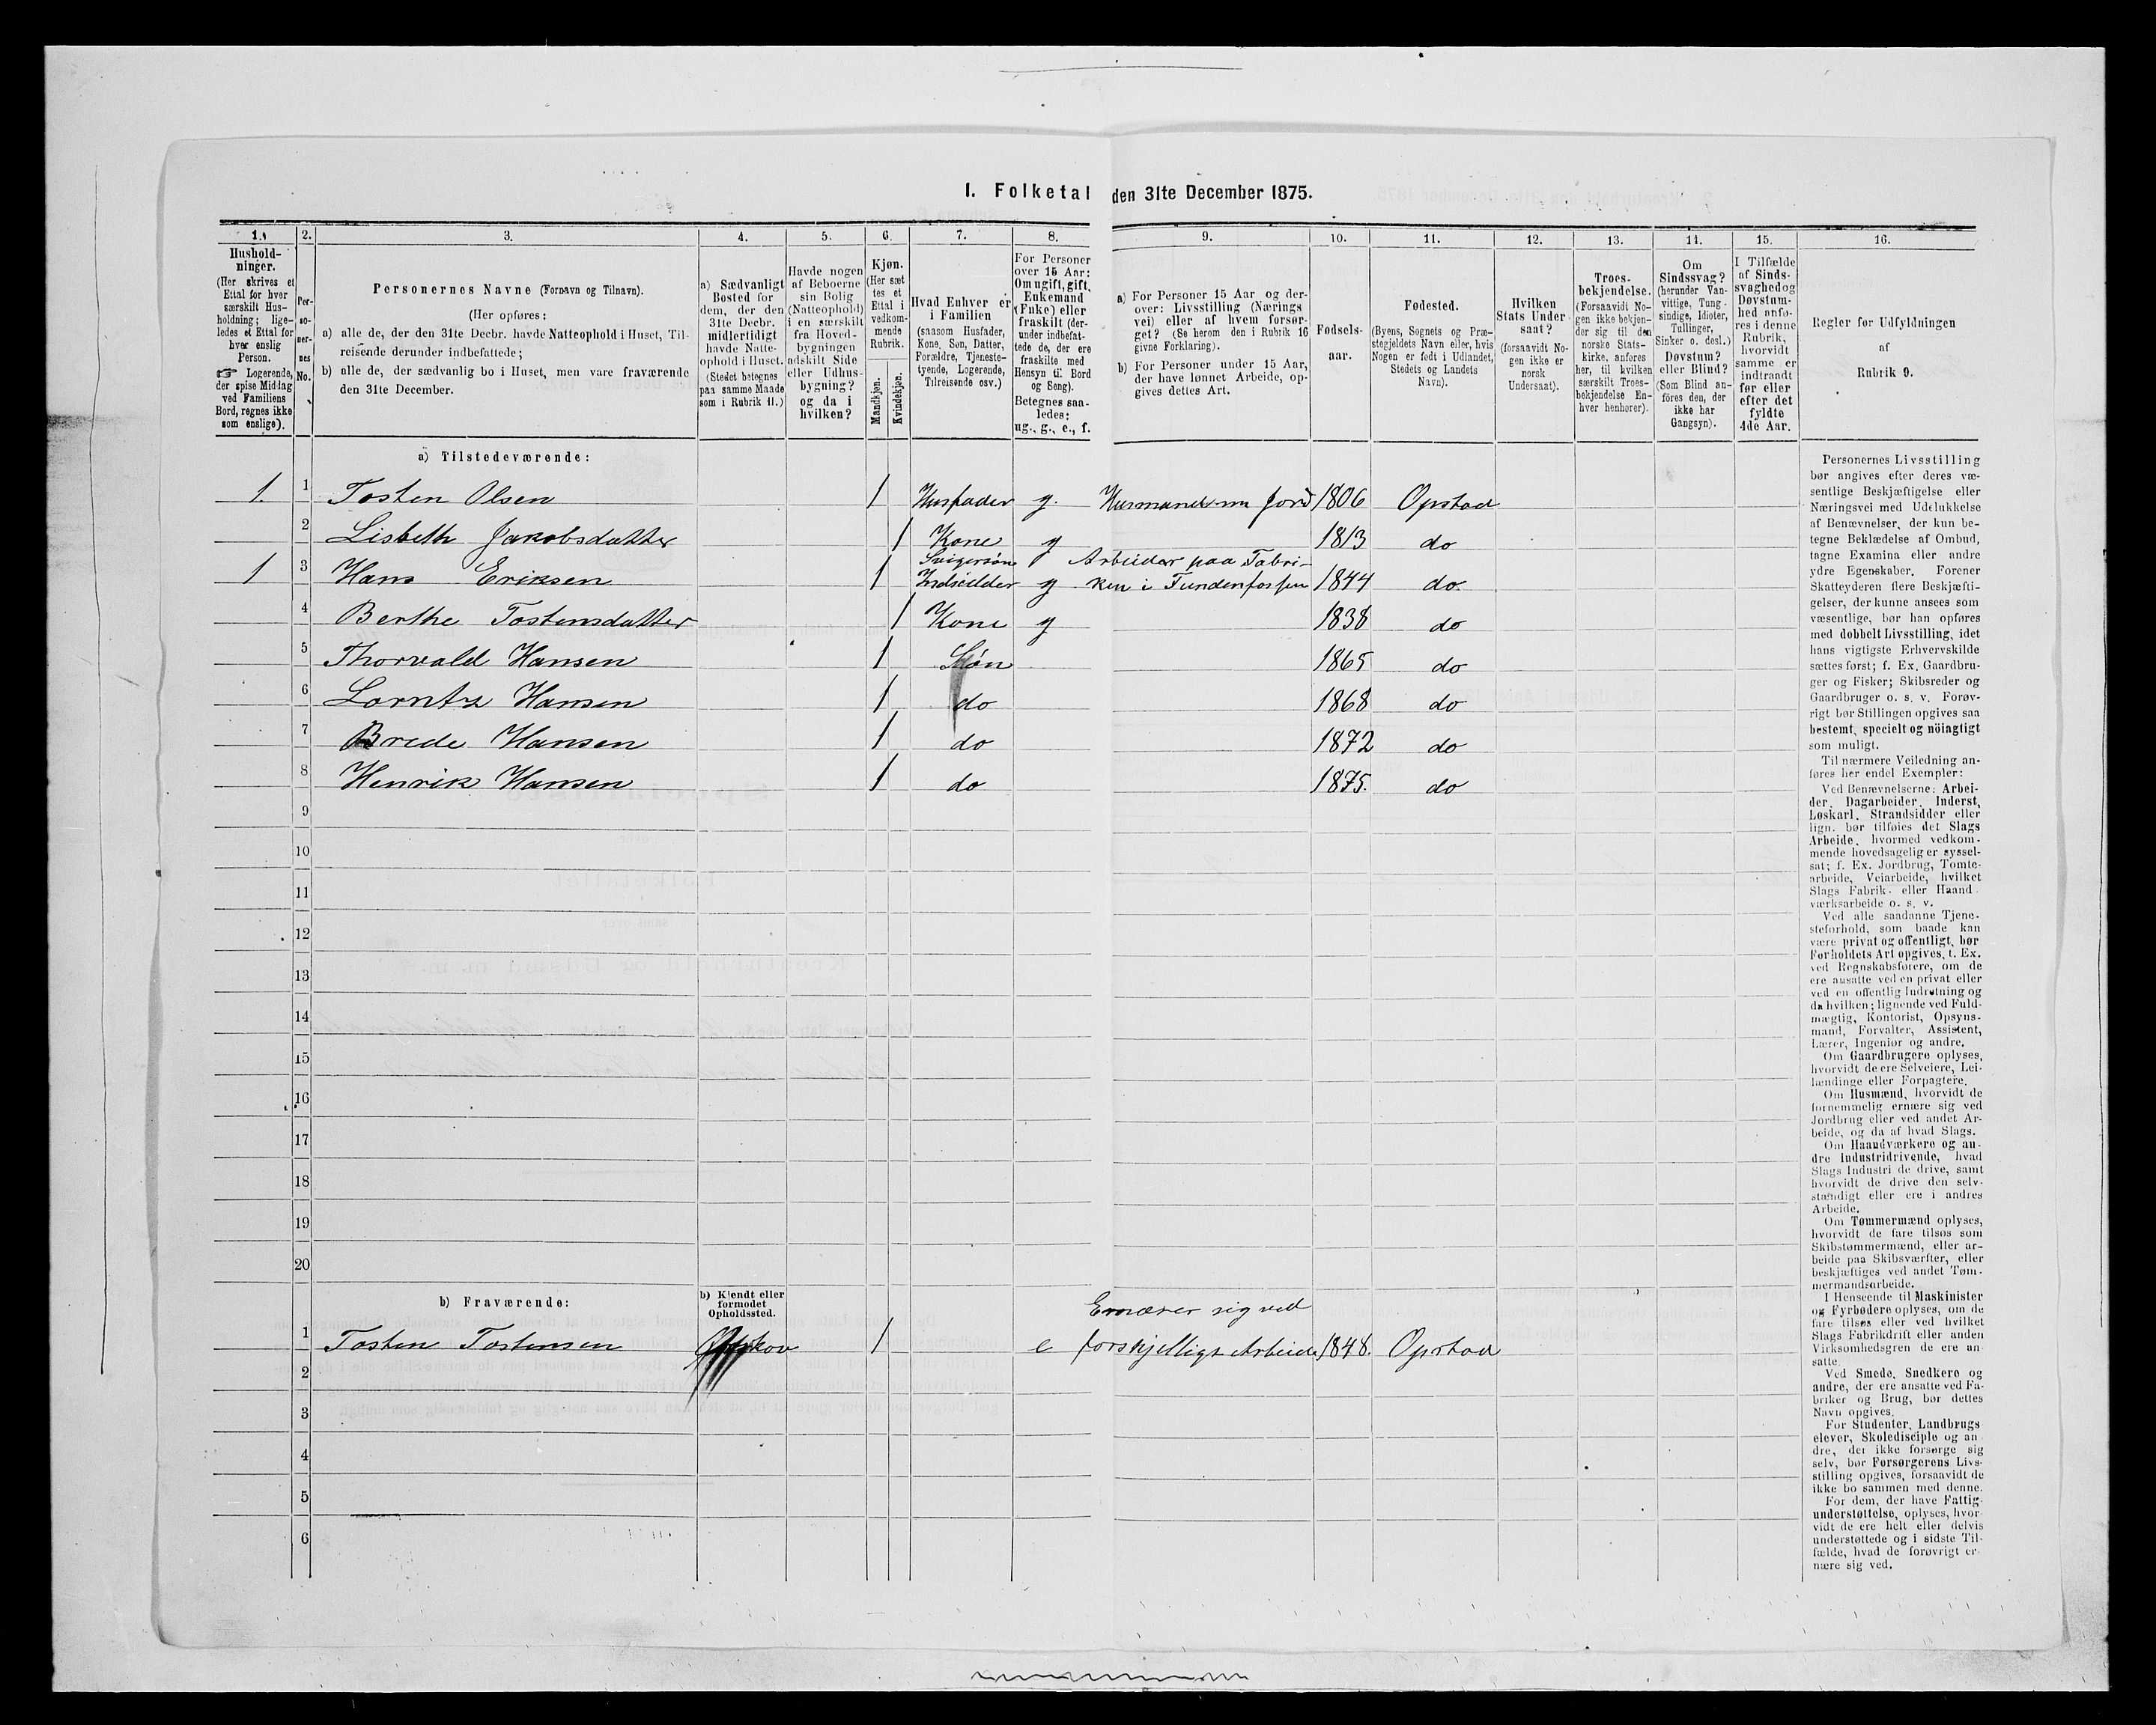 1. Folketal den 31te December 1875.
1. 2. 3. 4. 5. 6. 7. 8. 9. 10. 11. 12. 13. 14. 15. 16.
Hushold-
ninger.
(Her skrives et
Ettal for hver
særskilt Hus-
holdning; lige-
ledes et Ettal for
hver enslig
Person.
☞ Logerende,
der spise Middag
ved Familiens
Bord, regnes ikke
som enslige).
Per-
so-
ner-
nes
No.
Personernes Navne (Fornavn og Tilnavn).
(Her opføres:
a) alle de, der den 31te Decbr. havde Natteophold i Huset, Til-
reisende derunder indbefattede;
b) alle de, der sædvanlig bo i Huset, men vare fraværende
den 31te December.
a) Sædvanligt
Bosted for
dem, der den
31te Decbr.
midlertidigt
havde Natte-
ophold i Huset.
(Stedet betegnes
paa samme Maade
som i Rubrik 11.)
Havde nogen
af Beboerne
sin Bolig
(Natteophold)
i en særskilt
fra Hoved-
bygningen
adskilt Side
eller Udhus-
bygning?
og da i
hvilken?
Kjøn.
(Her sæt
tes et
Ettal i
vedkom-
mende
Rubrik.
Mandkjøn.
Kvindekjøn.
Hvad Enhver er
i Familien
(saasom Husfader,
Kone, Søn, Datter,
Forældre, Tjeneste-
tyende, Logerende,
Tilreisende osv.)
For Personer
over 15 Aar:
Om ugift, gift,
Enkemand
(Enke) eller
fraskilt (der-
under indbefat-
tede de, der ere
fraskilte med
Hensyn til Bord
og Seng).
Betegnes saa-
ledes:
ug., g., e., f.
a) For Personer 15 Aar og der-
over: Livsstilling (Nærings
vei) eller af hvem forsør-
get? (Se herom den i Rubrik 16
givne Forklaring).
b) For Personer under 15 Aar,
der have lønnet Arbeide, op-
gives dettes Art.
Fødsels-
aar.
Fødested.
(Byens, Sognets og Præ-
stegjeldets Navn eller, hvis
Nogen er født i Udlandet,
Stedets og Landets
Navn).
Hvilken
Stats Under
saat?
(forsaavidt No-
gen ikke er
norsk
Undersaat).
Troes-
bekjendelse.
(Forsaavidt No-
gen ikke bekjen-
der sig til den
norske Stats-
kirke, anføres
her, til hvilken
særskilt Troes-
bekjendelse En-
hver henhører).
Om
Sindssvag?
(herunder Van-
vittige, Tung-
sindige, Idioter,
Tullinger,
Sinker o. desl.)
Døvstum?
eller Blind?
(Som Blind an-
føres den, der
ikke har
Gangsyn).
I Tilfælde
af Sinds-
svaghed og
Døvstum-
hed anfø-
res i denne
Rubrik,
hvorvidt
samme er
indtraadt
før eller
efter det
fyldte
4de Aar.
Regler for Udfyldningen
af
Rubrik 9.
a) Tilstedeværende:
1 1 Tosten Olsen 1 Husfader g. Husmand m Jord 1806 Opstad
2 Lisbeth Jakobsdatter 1 Kone g 1813 do
Svigersøn Arbeider paa Fabri-
1 3 Hans Eriksen 1 Indsidder g ken i Fundenfossen 1844 do.
4 Berthe Tostensdatter 1 Kone g 1838 do
5 Thorvald Hansen 1 Søn 1865 do
6 Lorntz Hansen 1 do 1868 do
7 Brede Hansen 1 do 1872 do
8 Henrik Hansen 1 do 1875. do
9
10
11
12
13
14
15
16
17
18
19
20
b) Fraværende:
b) Kjendt eller
formodet
Opholdssted.
Ernærer sig ved
1 Tosten Tostensen 1 e forskjelligt Arbeide 1848. Opstad
2
3
4
5
6
Personernes Livsstilling
bør angives efter deres væ-
sentlige Beskjæftigelse eller
Næringsvei med Udelukkelse
af Benævnelser, der kun be-
tegne Beklædelse af Ombud,
tagne Examina eller andre
ydre Egenskaber. Forener
Skatteyderen flere Beskjæfti-
gelser, der kunne ansees som
væsentlige, bør han opføres
med dobbelt Livsstilling, idet
hans vigtigste Erhvervskilde
sættes først; f. Ex. Gaardbru-
ger og Fisker; Skibsreder og
Gaardbruger o. s. v. Forøv-
rigt bør Stillingen opgives saa
bestemt, specielt og nöiagtigt
som muligt.
Til nærmere Veiledning an-
føres her endel Exempler:
Ved Benævnelserne: Arbei-
der, Dagarbeider, Inderst,
Løskarl, Strandsidder eller
lign. bør tilføies det Slags
Arbeide, hvormed vedkom-
mende hovedsagelig er syssel-
sat; f. Ex. Jordbrug, Tomte-
arbeide, Veiarbeide, hvilket
Slags Fabrik- eller Haand-
værksarbeide o. s. v.
Ved alle saadanne Tjene-
steforhold, som baade kan
være privat og offentligt, bør
Forholdets Art opgives, t. Ex.
ved Regnskabsførere, om de
ere ansatte ved en privat eller
ved en offentlig Indretning og
da hvilken; lignende ved Fuld-
mægtig, Kontorist, Opsyns-
mand, Forvalter, Assistent,
Lærer, Ingeniør og andre.
Om Gaardbrugere oplyses,
hvorvidt de ere Selveiere, Lei-
lændinge eller Forpagtere.
Om Husmænd, hvorvidt de
fornemmelig ernære sig ved
Jordbrug eller ved andet Ar-
beide, og da af hvad Slags.
Om Haandværkere og an-
dre Industridrivende, hvad
Slags Industri de drive, samt
hvorvidt de drive den selv-
stændigt eller ere i andres
Arbeide.
Om Tømmermænd oplyses,
hvorvidt de fare tilsøs som
Skibstømmermænd, eller ar-
beide paa Skibsværfter, eller
beskjæftiges ved andet Tøm-
mermandsarbeide.
I Henseende til Maskinister
og Fyrbødere oplyses, om de
fare tilsøs eller ved hvilket
Slags Fabrikdrift eller anden
Virksomhedsgren de ere an-
satte.
Ved Smede, Snedkere og
andre, der ere ansatte ved Fa-
briker og Brug, bør dettes
Navn opgives.
For Studenter, Landbrugs
elever, Skoledisciple og an-
dre, der ikke forsørge sig
selv, bør Forsørgerens Livs-
stilling opgives, forsaavidt de
ikke bo sammen med denne.
For dem, der have Fattig-
understøttelse, oplyses, hvor-
vidt de ere helt eller delvis
understøttede og i sidste Til-
fælde, hvad de forøvrigt er-
nære sig ved.